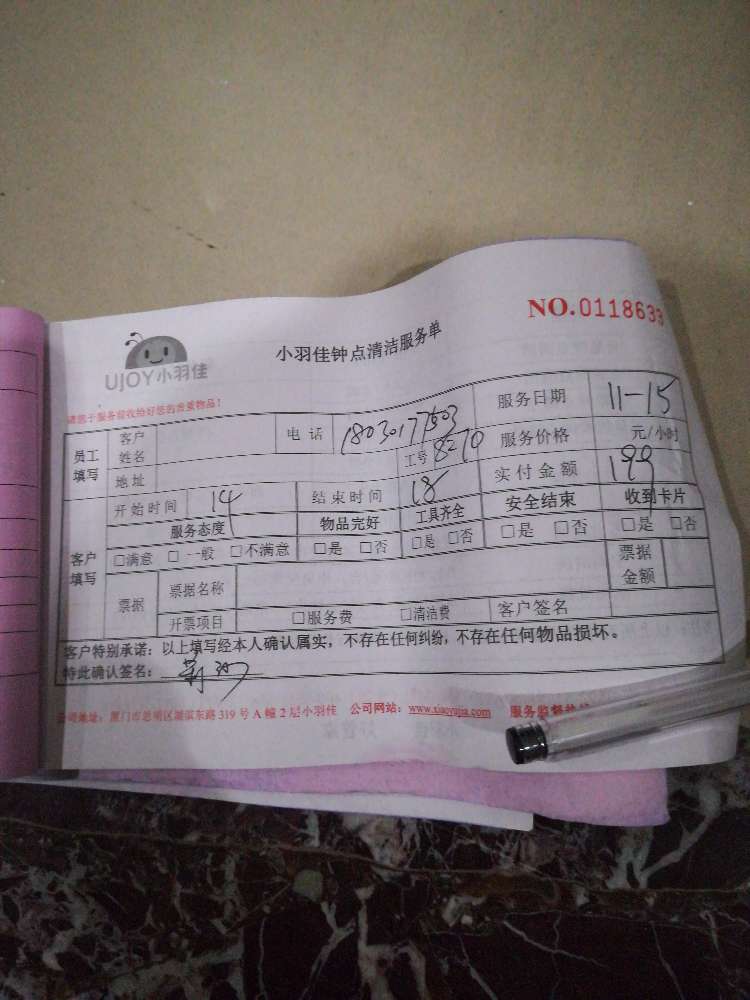 NO.0118633
UJOY小羽佳
小羽佳钟点清洁服务单
请您于服务前收拾好您的贵重物品!
员工填写 客户姓名 电话 18030177503 服务日期 11-15
地址 工号 8270 服务价格 元/小时
开始时间 14 结束时间 18 实付金额 199
客户填写 服务态度 物品完好 工具齐全 安全结束 收到卡片
□满意 □一般 □不满意 □是 □否 □是 □否 □是 □否 □是 □否
票据 票据名称 票据金额
开票项目 □服务费 □清洁费 客户签名
客户特别承诺:以上填写经本人确认属实,不存在任何纠纷,不存在任何物品损坏。
特此确认签名:
公司地址:厦门市思明区湖滨东路319号A幢2层小羽佳 公司网站:www.xiaoyujia.com 服务监督热线